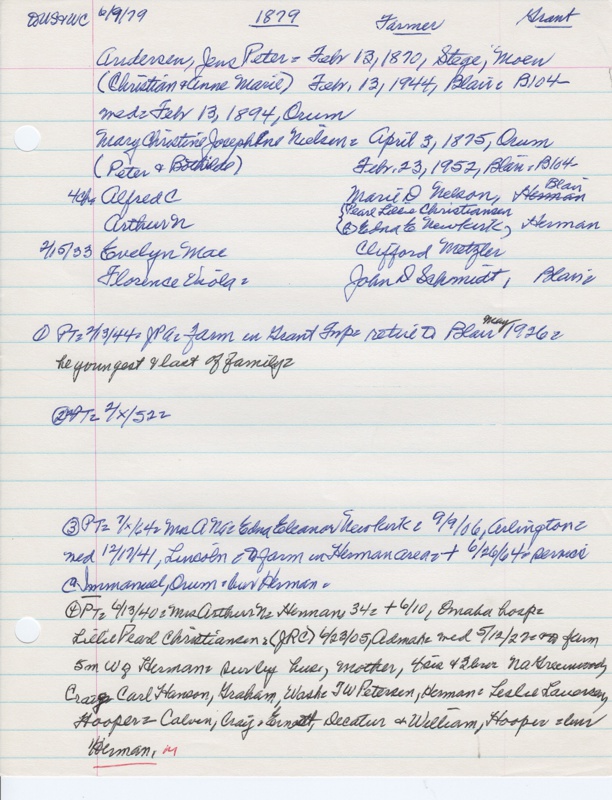 6/9/79 1879 Farmer Grant
Andersen, Jens Peter = Feb 13, 1870, Stege, Moen
(Christian & Anne Marie) Feb. 13, 1944, Blair = B104
med = Feb 13, 1894, Orum
Mary Christine Josephine Nielsen = April 3, 1875, Orum
(Peter & Bothilde) Feb. 23, 1952, Blair, B104
4ch Alfred C Marie D Nelson, Herman Blair
Arthur N {Pearl Lillie Christiansen
{(2) Edna E Newkirk, Herman
2/15/33 Evelyn Mae Clifford Metzler
Florence Viola = John D Schmidt, Blair =
① PT= 2/13/44 = JPA = farm in Grant Twp = retire to Blair May 1926 =
he youngest & last of family =
② PT= 2/x/52 =
③ PT= 7/x/64 = Mrs A NA = Edna Eleanor Newkirk = 9/9/06, Arlington =
med 12/17/41, Lincoln = to farm in Herman area = + 6/26/64 = service
@ Immanuel, Orum = bur Herman =
④ PT= 6/13/40 = Mrs Arthur N = Herman, 34 = + 6/10, Omaha hosp =
Lillie Pearl Christiansen = (JRC) 6/23/05, Admah = med 5/12/27 = farm
5m W of Herman = surv by husb, mother, 4 sis & 3 bror Na Greenwood,
Craig Carl Hanson, Graham, Wash = T W Petersen, Herman = Leslie Laursen,
Hooper = Calvin, Craig = Ernest, Decatur & William, Hooper = bur
Herman. M